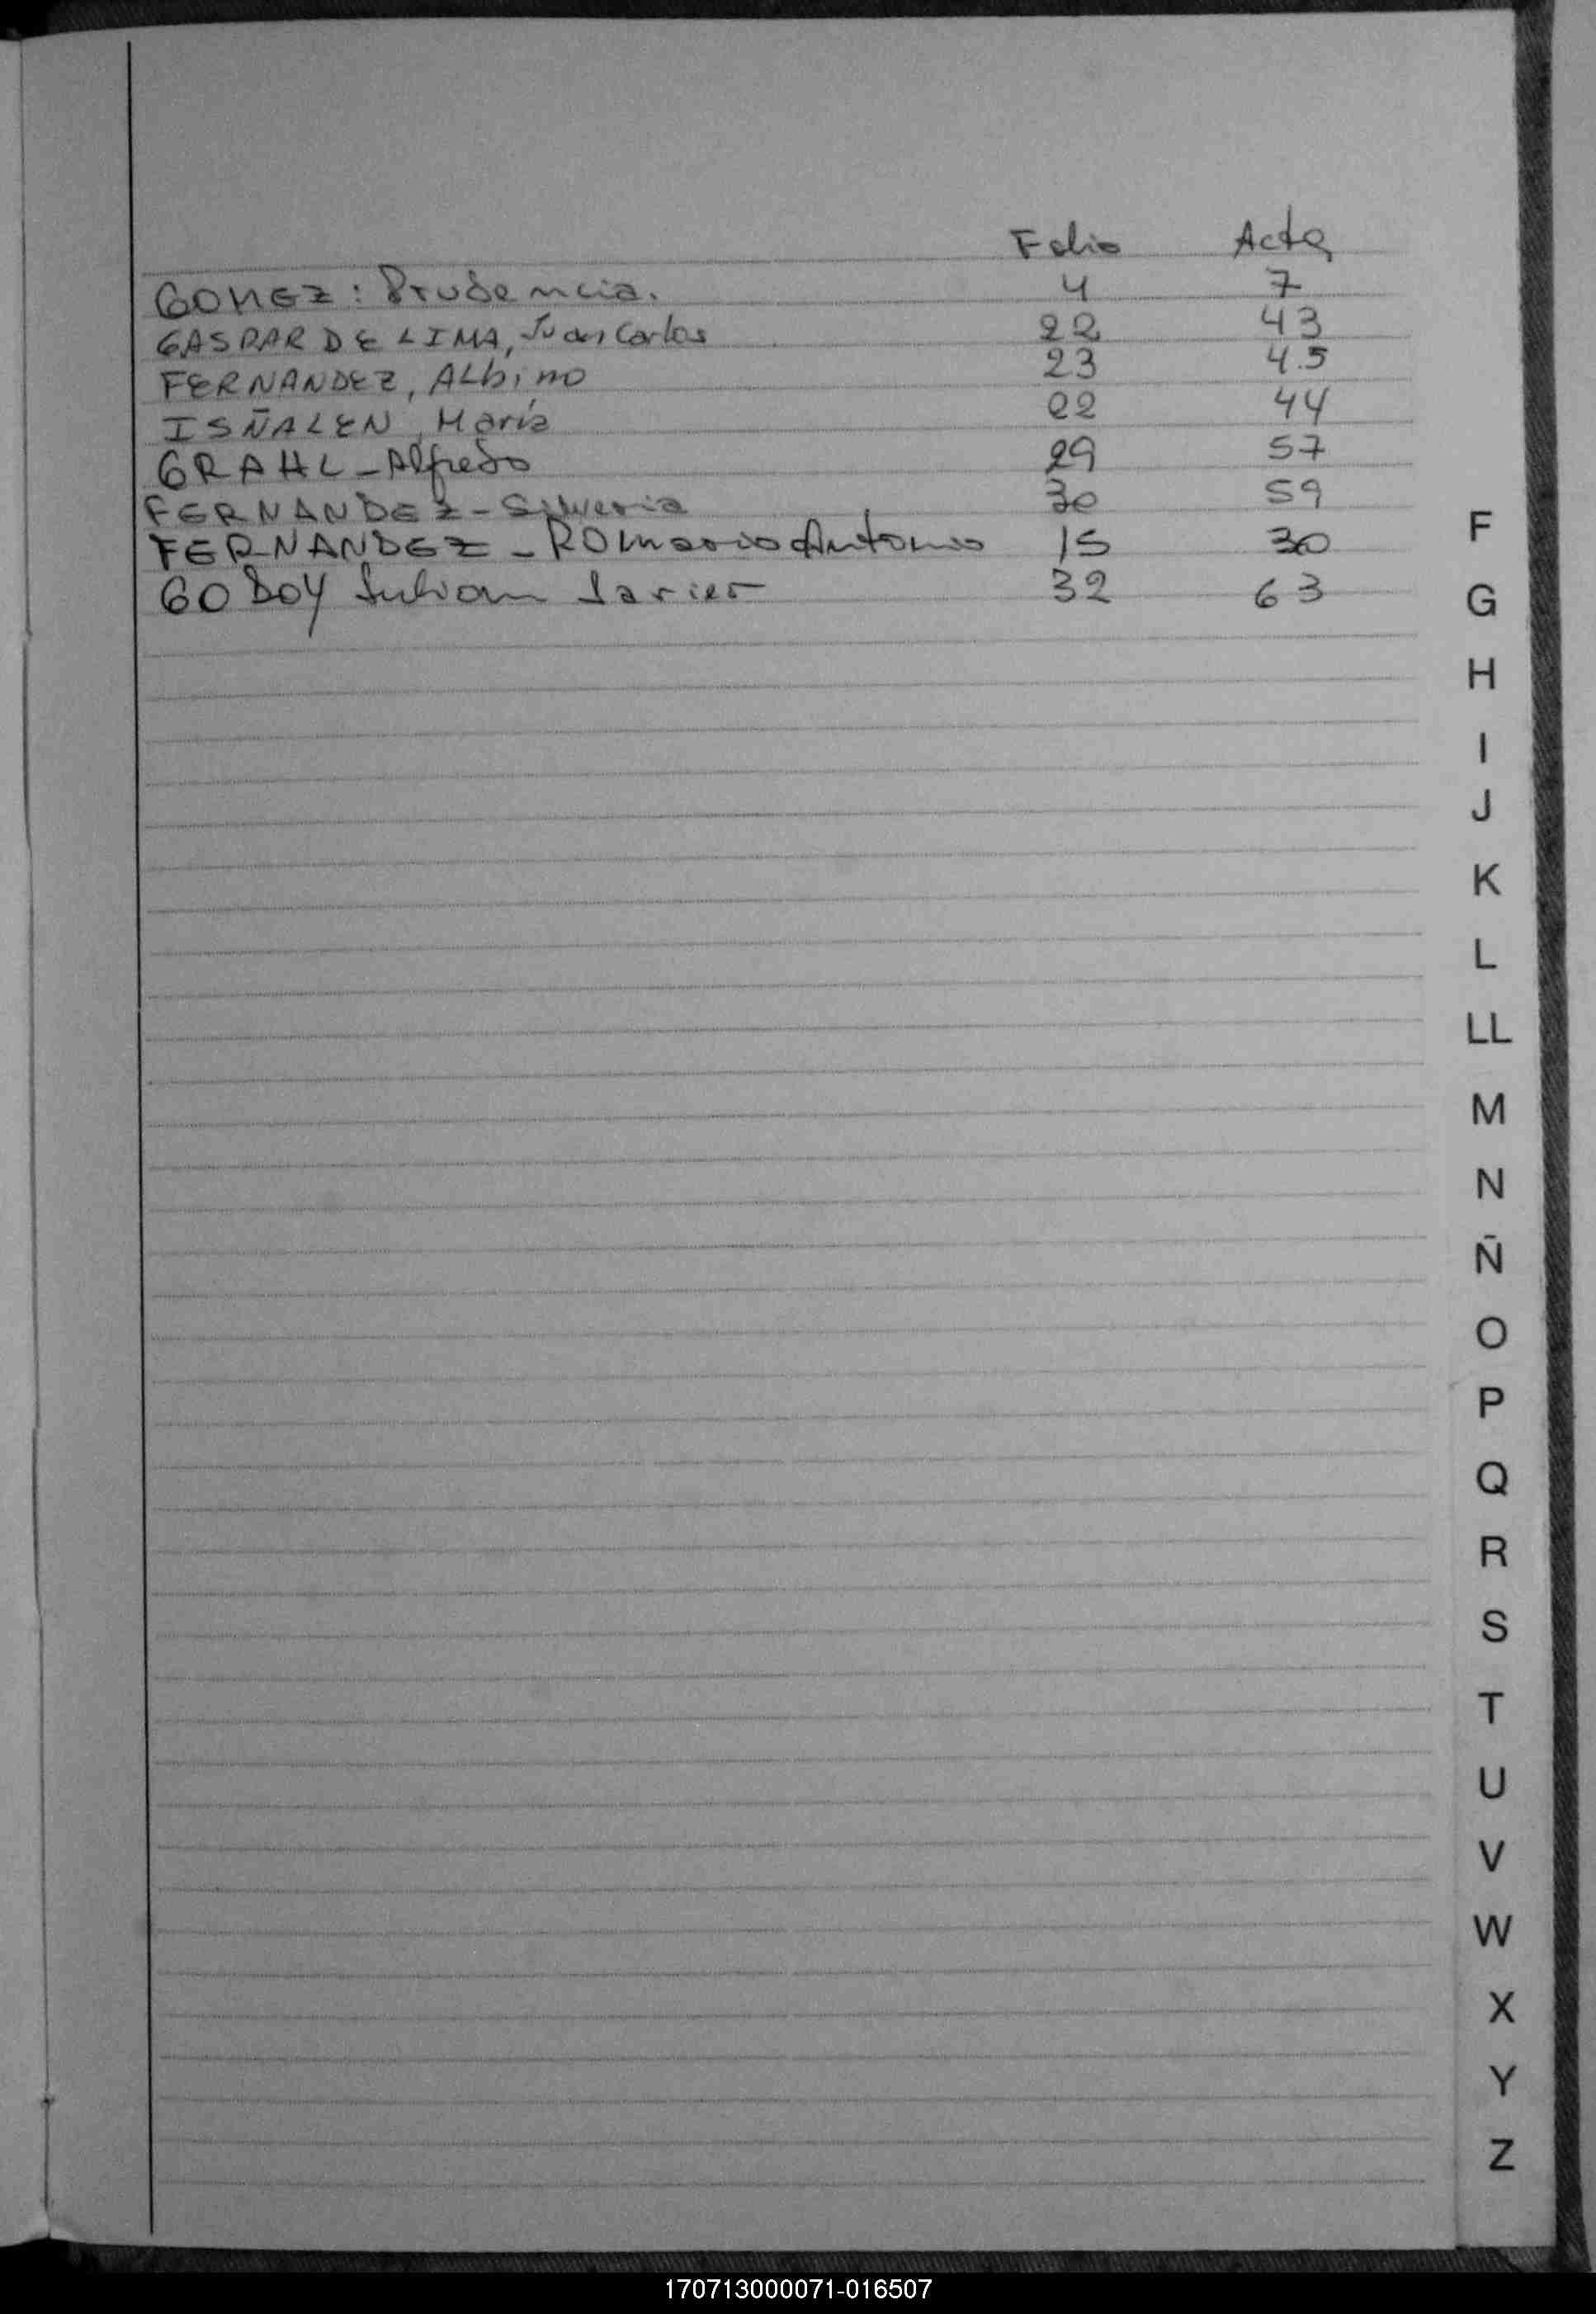 Folio Acta
GOMEZ: Prudencia. 4 7
GASPAR DE LIMA, Juan Carlos 22 43
FERNANDEZ, ALbino 23 4.5
ISÑALEN, María 22 44
GRAHL - Alfredo 29 57
FERNANDEZ - Silveria 30 59
FERNANDEZ - ROmario Antonio 15 30
GODOY Julian Javier 32 63
F
G
H
I
J
K
L
LL
M
N
Ñ
O
P
Q
R
S
T
U
V
W
X
Y
Z
170713000071-016507